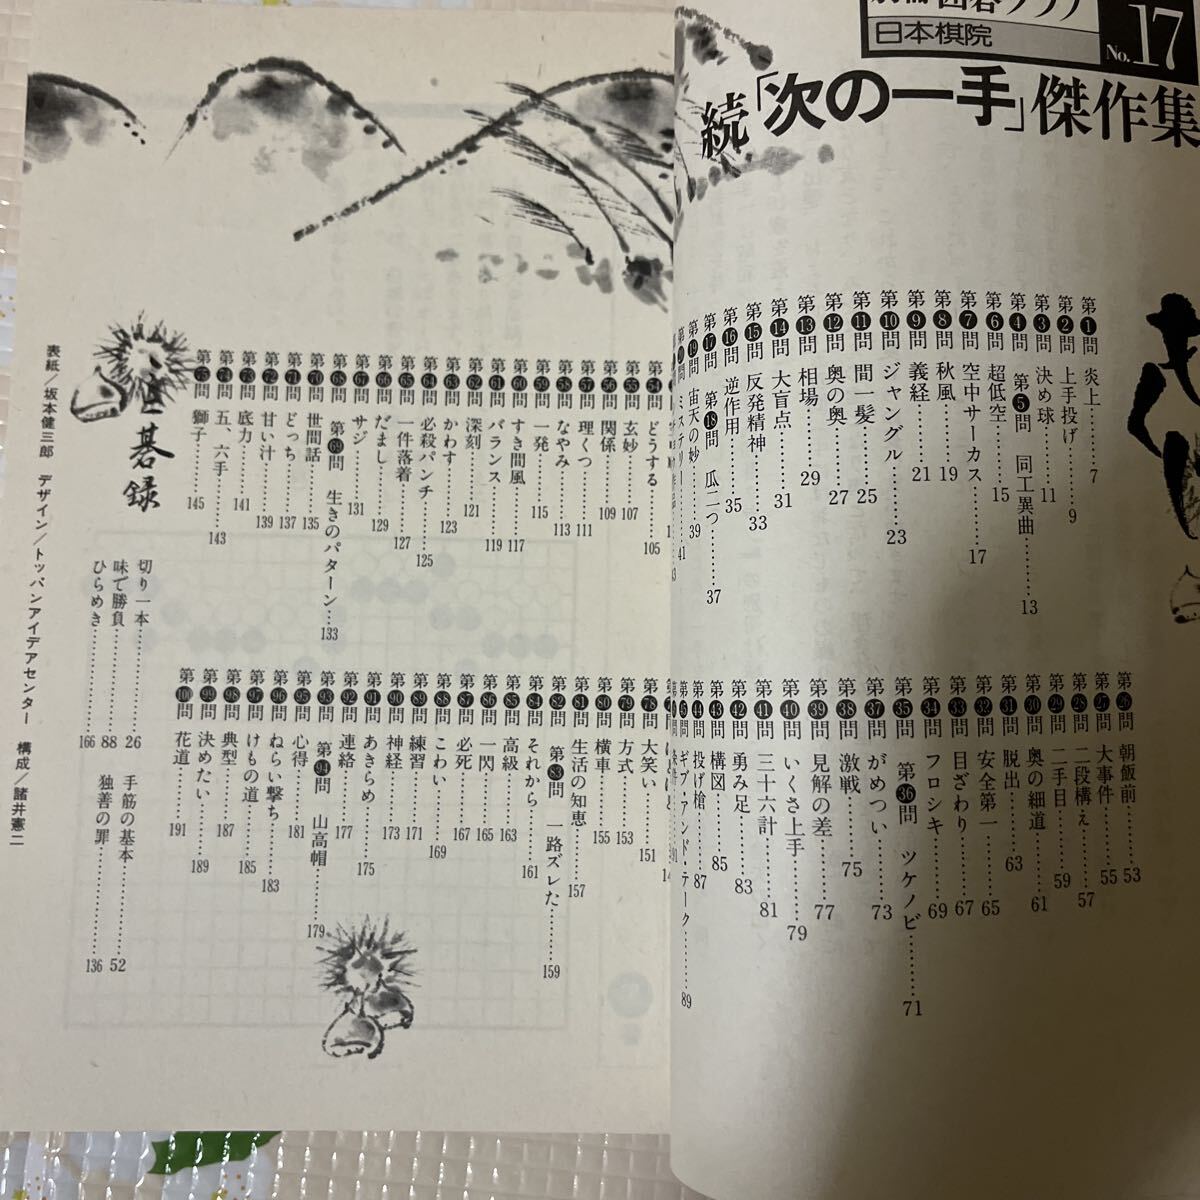 日本棋院
No.17
続「次の一手」傑作集
第1問 炎上………7
第2問 上手投げ………9
第3問 決め球………11
第4問
第5問 同工異曲………13
第6問 超低空………15
第7問 空中サーカス………17
第8問 秋風………19
第9問 義経………21
第10問 ジャングル………23
第11問 間一髪………25
第12問 奥の奥………27
第13問 相場………29
第14問 大盲点………31
第15問 反発精神………33
第16問 逆作用………35
第17問
第18問 瓜二つ………37
第19問 宙天の妙………39
ミステリー………41
第26問 朝飯前………53
第27問 大事件………55
第28問 二段構え………57
第29問 二手目………59
第30問 奥の細道………61
第31問 脱出………63
第32問 安全第一………65
第33問 目ざわり………67
第34問 フロシキ………69
第35問
第36問 ツケノビ………71
第37問 がめつい………73
第38問 激戦………75
第39問 見解の差………77
第40問 いくさ上手………79
第41問 三十六計………81
第42問 勇み足………83
第43問 構図………85
第44問 投げ槍………87
第45問 ギブ・アンド・テーク………89
第54問 どうする………105
第55問 玄妙………107
第56問 関係………109
第57問 理くつ………111
第58問 なやみ………113
第59問 一発………115
第60問 すき間風………117
第61問 バランス………119
第62問 深刻………121
第63問 かわす………123
第64問 必殺パンチ………125
第65問 一件落着………127
第66問 だまし………129
第67問 サジ………131
第68問
第69問 生きのパターン………133
第70問 世間話………135
第71問 どっち………137
第72問 甘い汁………139
第73問 底力………141
第74問 五、六手………143
第75問 獅子………145
第78問 大笑い………151
第79問 方式………153
第80問 横車………155
第81問 生活の知恵………157
第82問
第83問 一路ズレた………159
第84問 それから………161
第85問 高級………163
第86問 一閃………165
第87問 必死………167
第88問 こわい………169
第89問 練習………171
第90問 神経………173
第91問 あきらめ………175
第92問 連絡………177
第93問
第94問 山高帽………179
第95問 心得………181
第96問 ねらい撃ち………183
第97問 けもの道………185
第98問 典型………187
第99問 決めたい………189
第100問 花道………191
切り一本………26
味で勝負………88
ひらめき………166
手筋の基本………52
独善の罪………136
碁録
表紙／坂本健三郎 デザイン／トッパンアイデアセンター 構成／諸井憲二